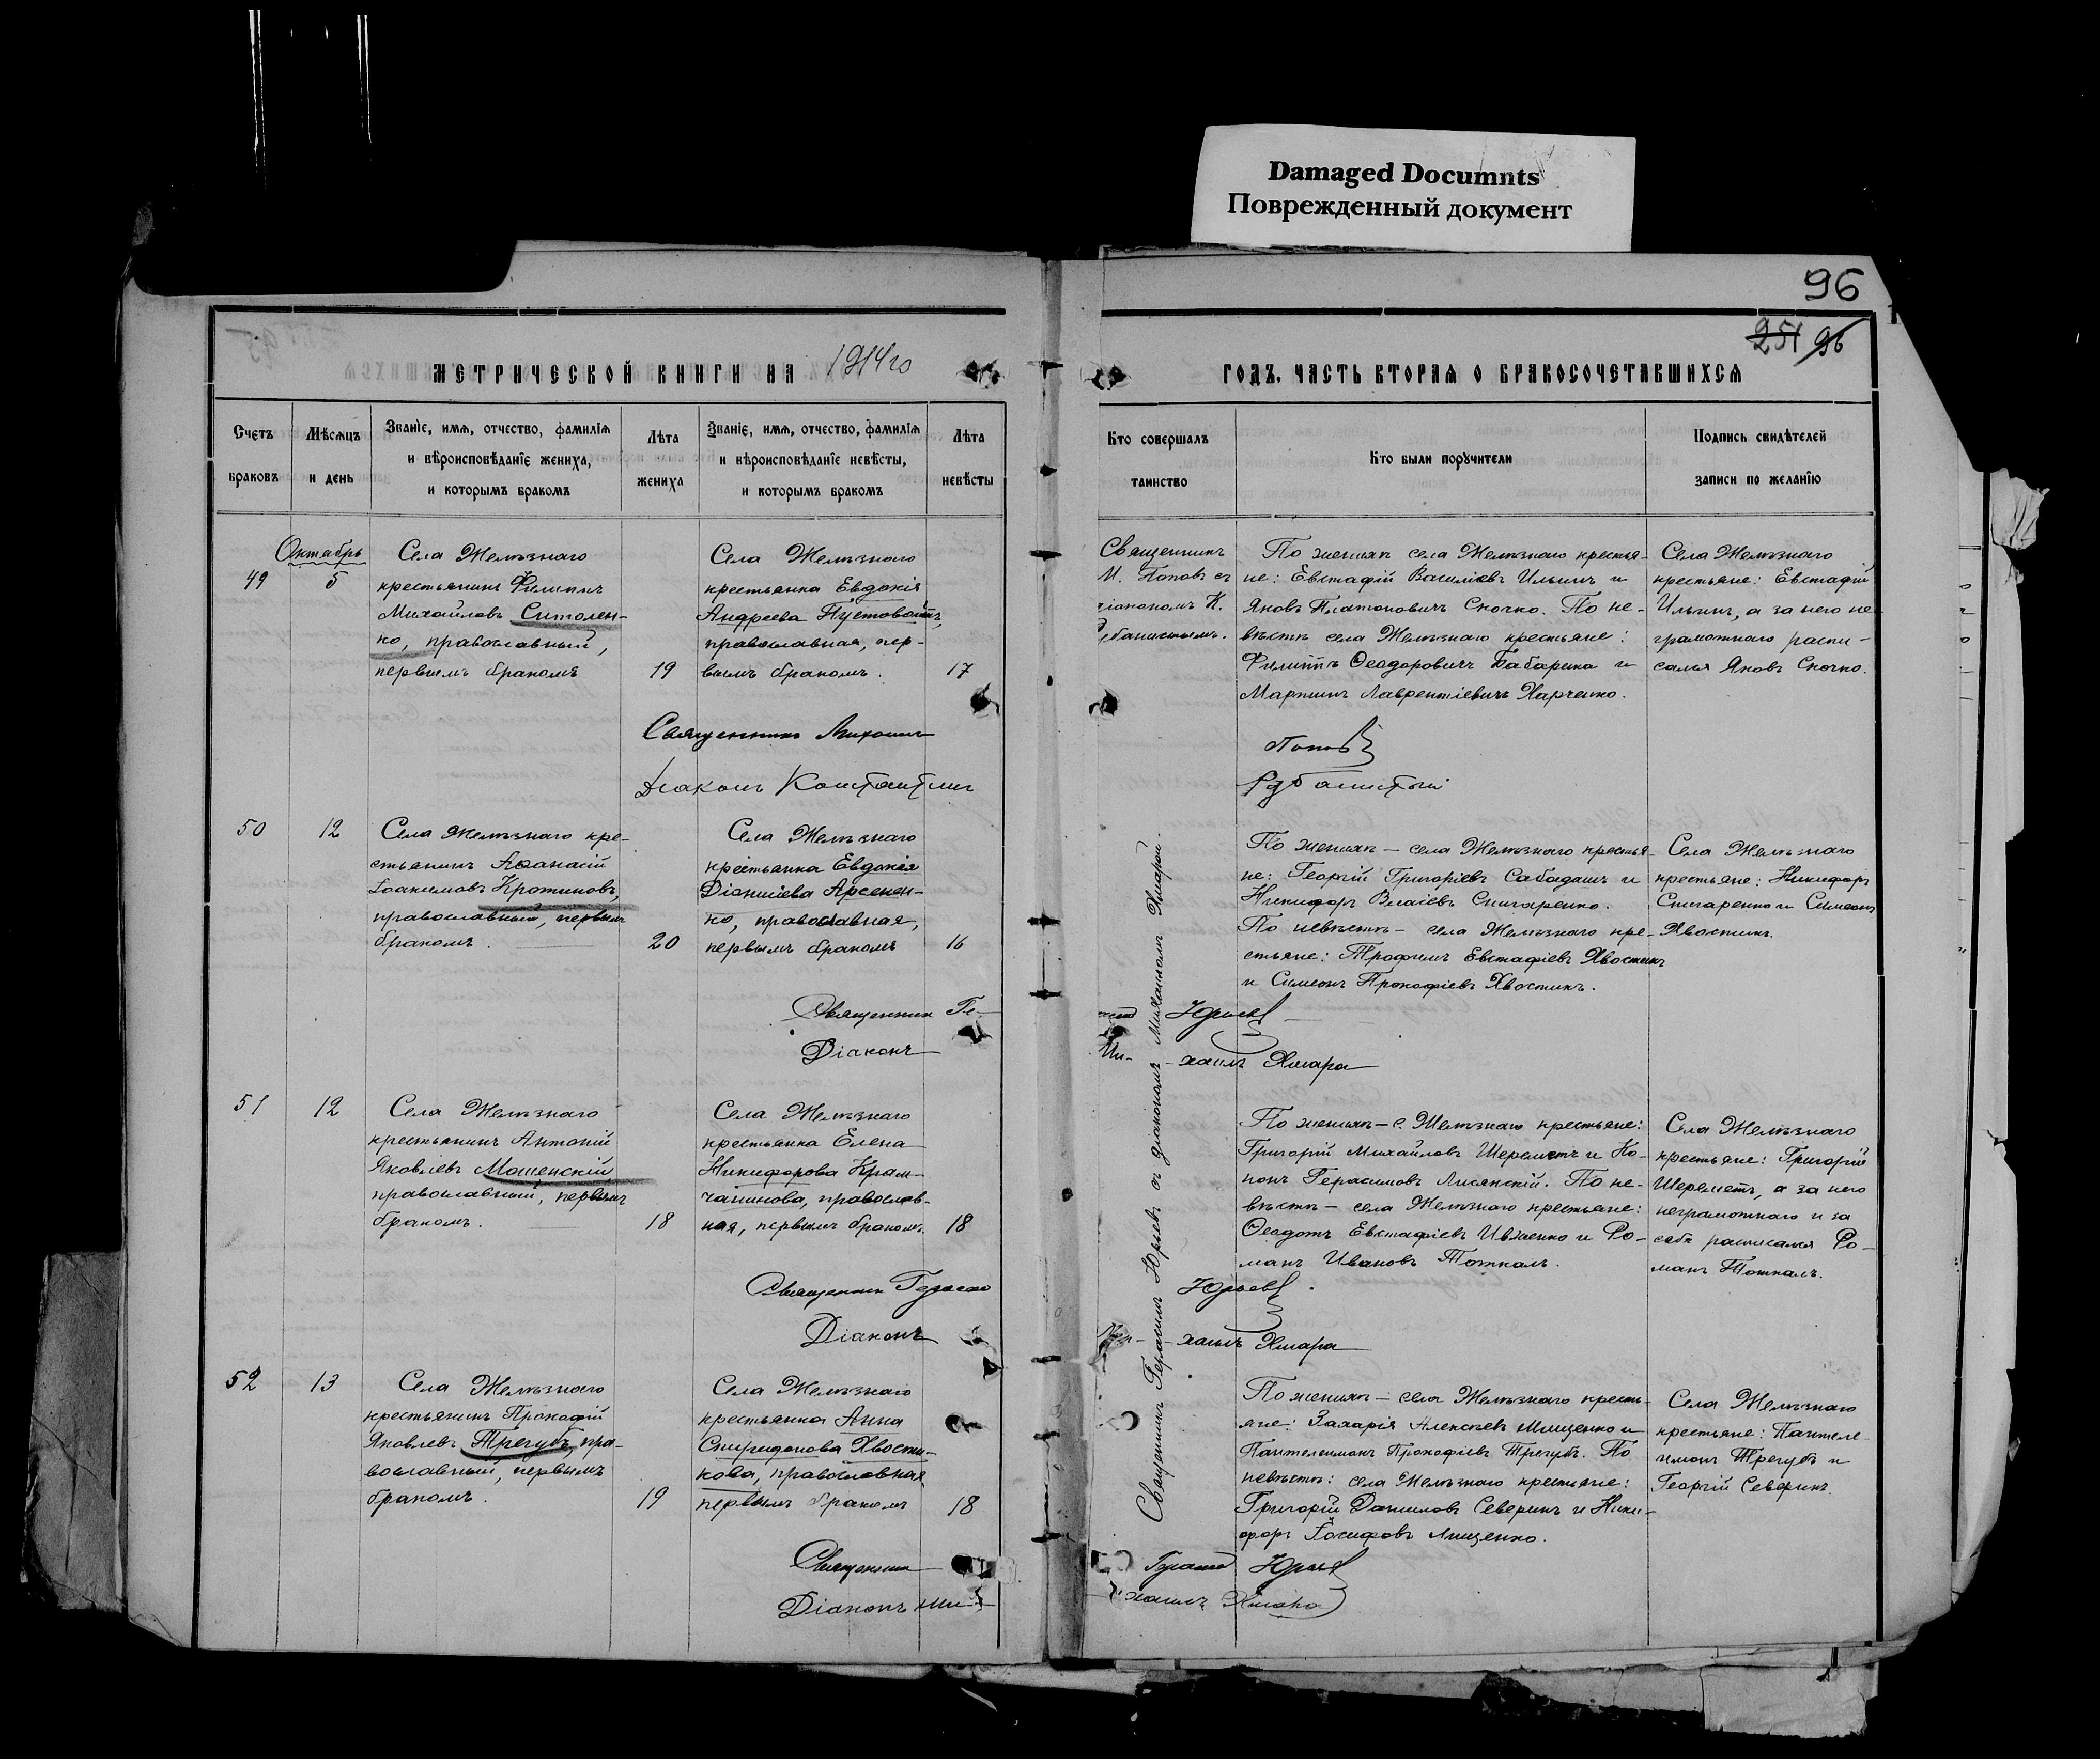 Damaged Documnts
Поврежденный документ
96
251 96
МЕТРИЧЕСКОЙ КНИГИ НА 1914го
ГОДЪ, ЧАСТЬ ВТОРАЯ О БРАКОСОЧЕТАВШИХСЯ
Счетъ
браковъ
Мѣсяцъ
и день
Званіе, имя, отчество, фамилія
и вѣроисповѣданіе жениха,
и которымъ бракомъ
Лѣта
жениха
Званіе, имя, отчество, фамилія
и вѣроисповѣданіе невѣсты,
и которымъ бракомъ
Лѣта
невѣсты
Кто совершалъ
таинство
Кто были поручители
Подпись свидѣтелей
записи по желанію
49
Октябрь
5
Села Желѣзнаго
крестьянинъ Филиппъ
Михайловъ Ситолен-
ко, православный,
первымъ бракомъ
19
Села Желѣзнаго
крестьянка Евдокія
Андреева Пустовойтъ,
православная, пер-
вымъ бракомъ.
17
Священникъ
М. Поповъ съ
діакономъ К.
По женихѣ села Желѣзнаго крестья-
не: Евстафій Василіевъ Ильинъ и
Яковъ Платоновичъ Скочко. По не-
вѣстѣ села Желѣзнаго крестьяне:
Филиппъ Ѳеодоровичъ Бабарика и
Мартинъ Лаврентіевичъ Харченко.
Села Желѣзнаго
крестьяне: Евстафій
Ильинъ, а за него не-
грамотнаго распи-
сался Яковъ Скочко.
Священникъ Михаилъ Поповъ
Діаконъ Константинъ
50
12
Села Желѣзнаго кре-
стьянинъ Аѳанасій
Іоакимовъ Кротиновъ,
православный, первымъ
бракомъ.
20
Села Желѣзнаго
крестьянка Евдокія
Діонисіева Арсенен-
ко, православная,
первымъ бракомъ
16
Священникъ Герасимъ Юрьевъ съ діакономъ Михаиломъ Хмарой.
По женихѣ – села Желѣзнаго крестья-
не: Георгій Григоріевъ Сабадашъ и
Никифоръ Власіевъ Снигаренко.
По невѣстѣ – села Желѣзнаго кре-
стьяне: Трофимъ Евстафіевъ Хвостикъ
и Симеонъ Прокофіевъ Хвостикъ.
Села Желѣзнаго
крестьяне: Никифоръ
Снигаренко и Симеонъ
Хвостикъ.
Священникъ Ге- Юрьевъ
Діаконъ Ми- хаилъ Хмара
51
12
Села Желѣзнаго
крестьянинъ Антоній
Яковлевъ Мошенскій,
православный, первымъ
бракомъ.
18
Села Желѣзнаго
крестьянка Елена
Никифорова Крам-
чанинова, православ-
ная, первымъ бракомъ.
18
По женихѣ – с. Желѣзнаго крестьяне:
Григорій Михайловъ Шереметъ и Ко-
нонъ Герасимовъ Лисянскій. По не-
вѣстѣ – села Желѣзнаго крестьяне:
Ѳеодотъ Евстафіевъ Ивженко и Ро-
манъ Ивановъ Тоткалъ.
Села Желѣзнаго
крестьяне: Григорій
Шереметъ, а за него
неграмотнаго и за
себя расписался Ро-
манъ Тоткалъ.
Священникъ Герасимъ Юрьевъ
Діаконъ хаилъ Хмара
52
13
Села Желѣзнаго
крестьянинъ Прокофій
Яковлевъ Трегубъ, пра-
вославный, первымъ
бракомъ.
19
Села Желѣзнаго
крестьянка Анна
Спиридонова Хвости-
кова, православная
первымъ бракомъ
18
По женихѣ – села Желѣзнаго кресть-
яне: Захарія Алексѣевъ Мищенко и
Пантелеимонъ Прокофіевъ Трегубъ. По
невѣстѣ: села Желѣзнаго крестьяне:
Григорій Даниловъ Северинъ и Ники-
форъ Іосифовъ Лищенко.
Села Желѣзнаго
крестьяне: Пантеле-
имонъ Трегубъ и
Георгій Северинъ.
Священникъ Герасимъ Юрьевъ
Діаконъ Ми- хаилъ Хмара